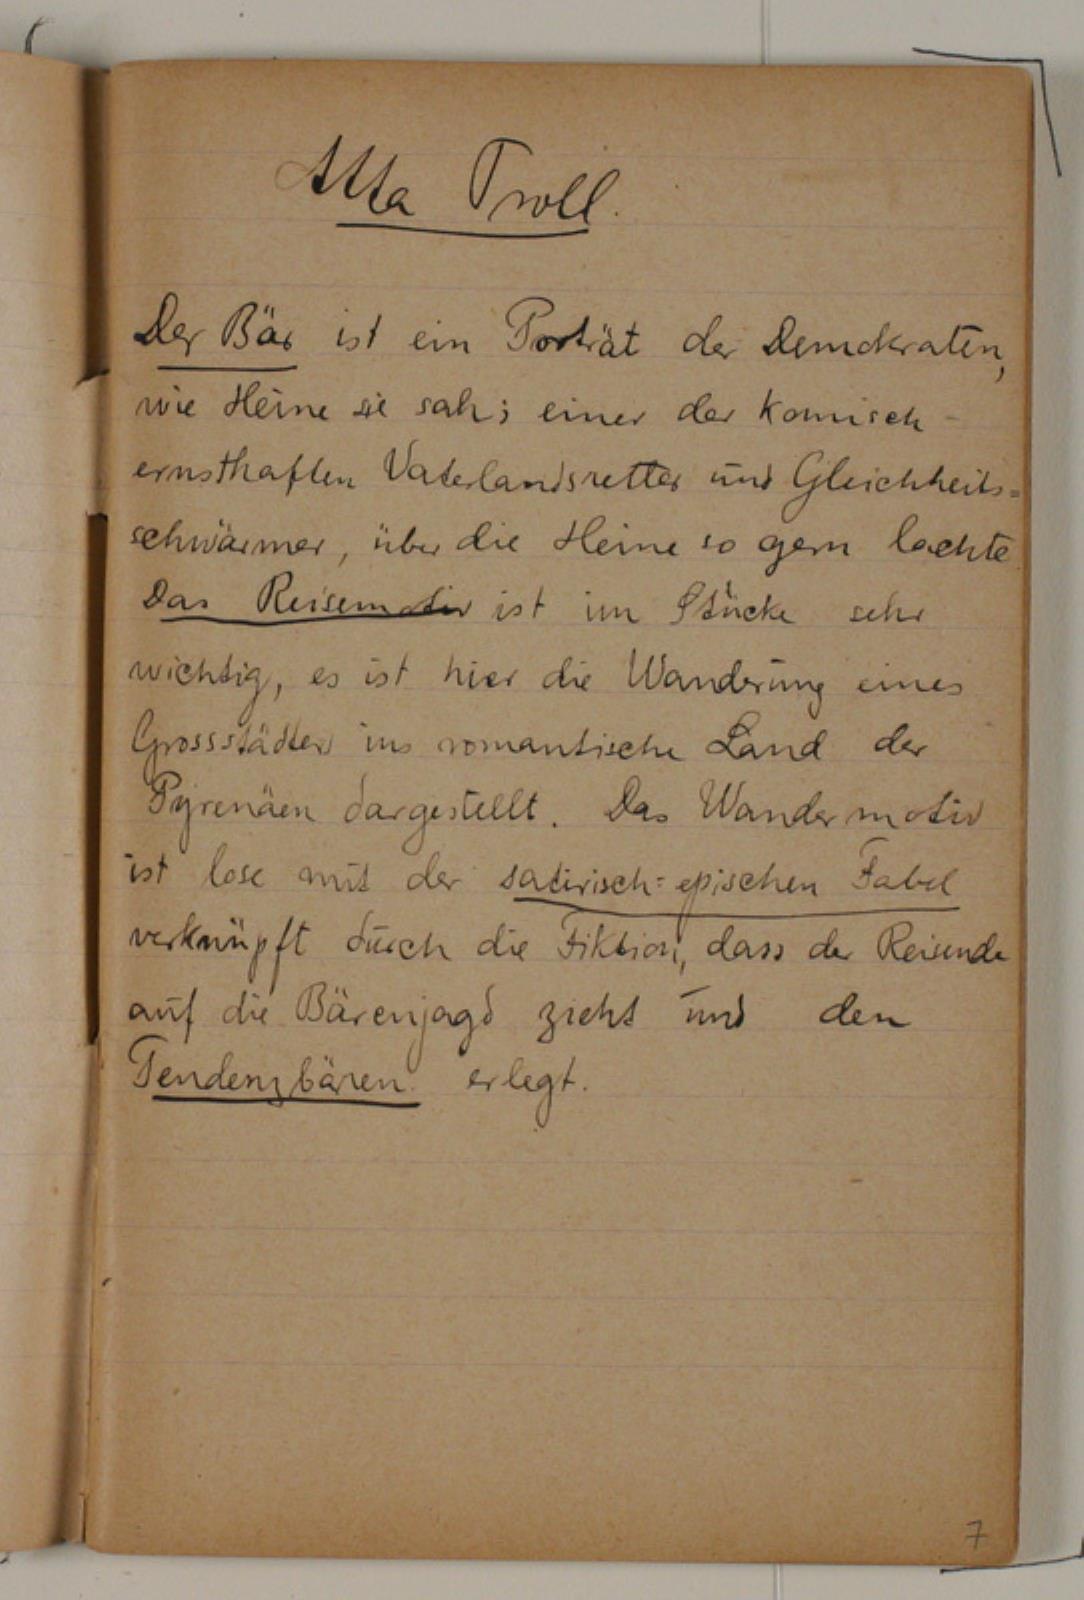 Atta Troll.
Der Bär ist ein Porträt der Demokraten,
wie Heine sie sah; einer der komisch-
ernsthaften Vaterlandsretter und Gleichheits=
schwärmer, über die Heine so gern lachte
Das Reisemotiv ist im Stücke sehr
wichtig, es ist hier die Wanderung eines
Grossstädters ins romantische Land der
Pyrenäen dargestellt. Das Wandermotiv
ist lose mit der satirisch=epischen Fabel
verknüpft durch die Fiktion, dass der Reisende
auf die Bärenjagd zieht und den
Tendenzbären erlegt.
7